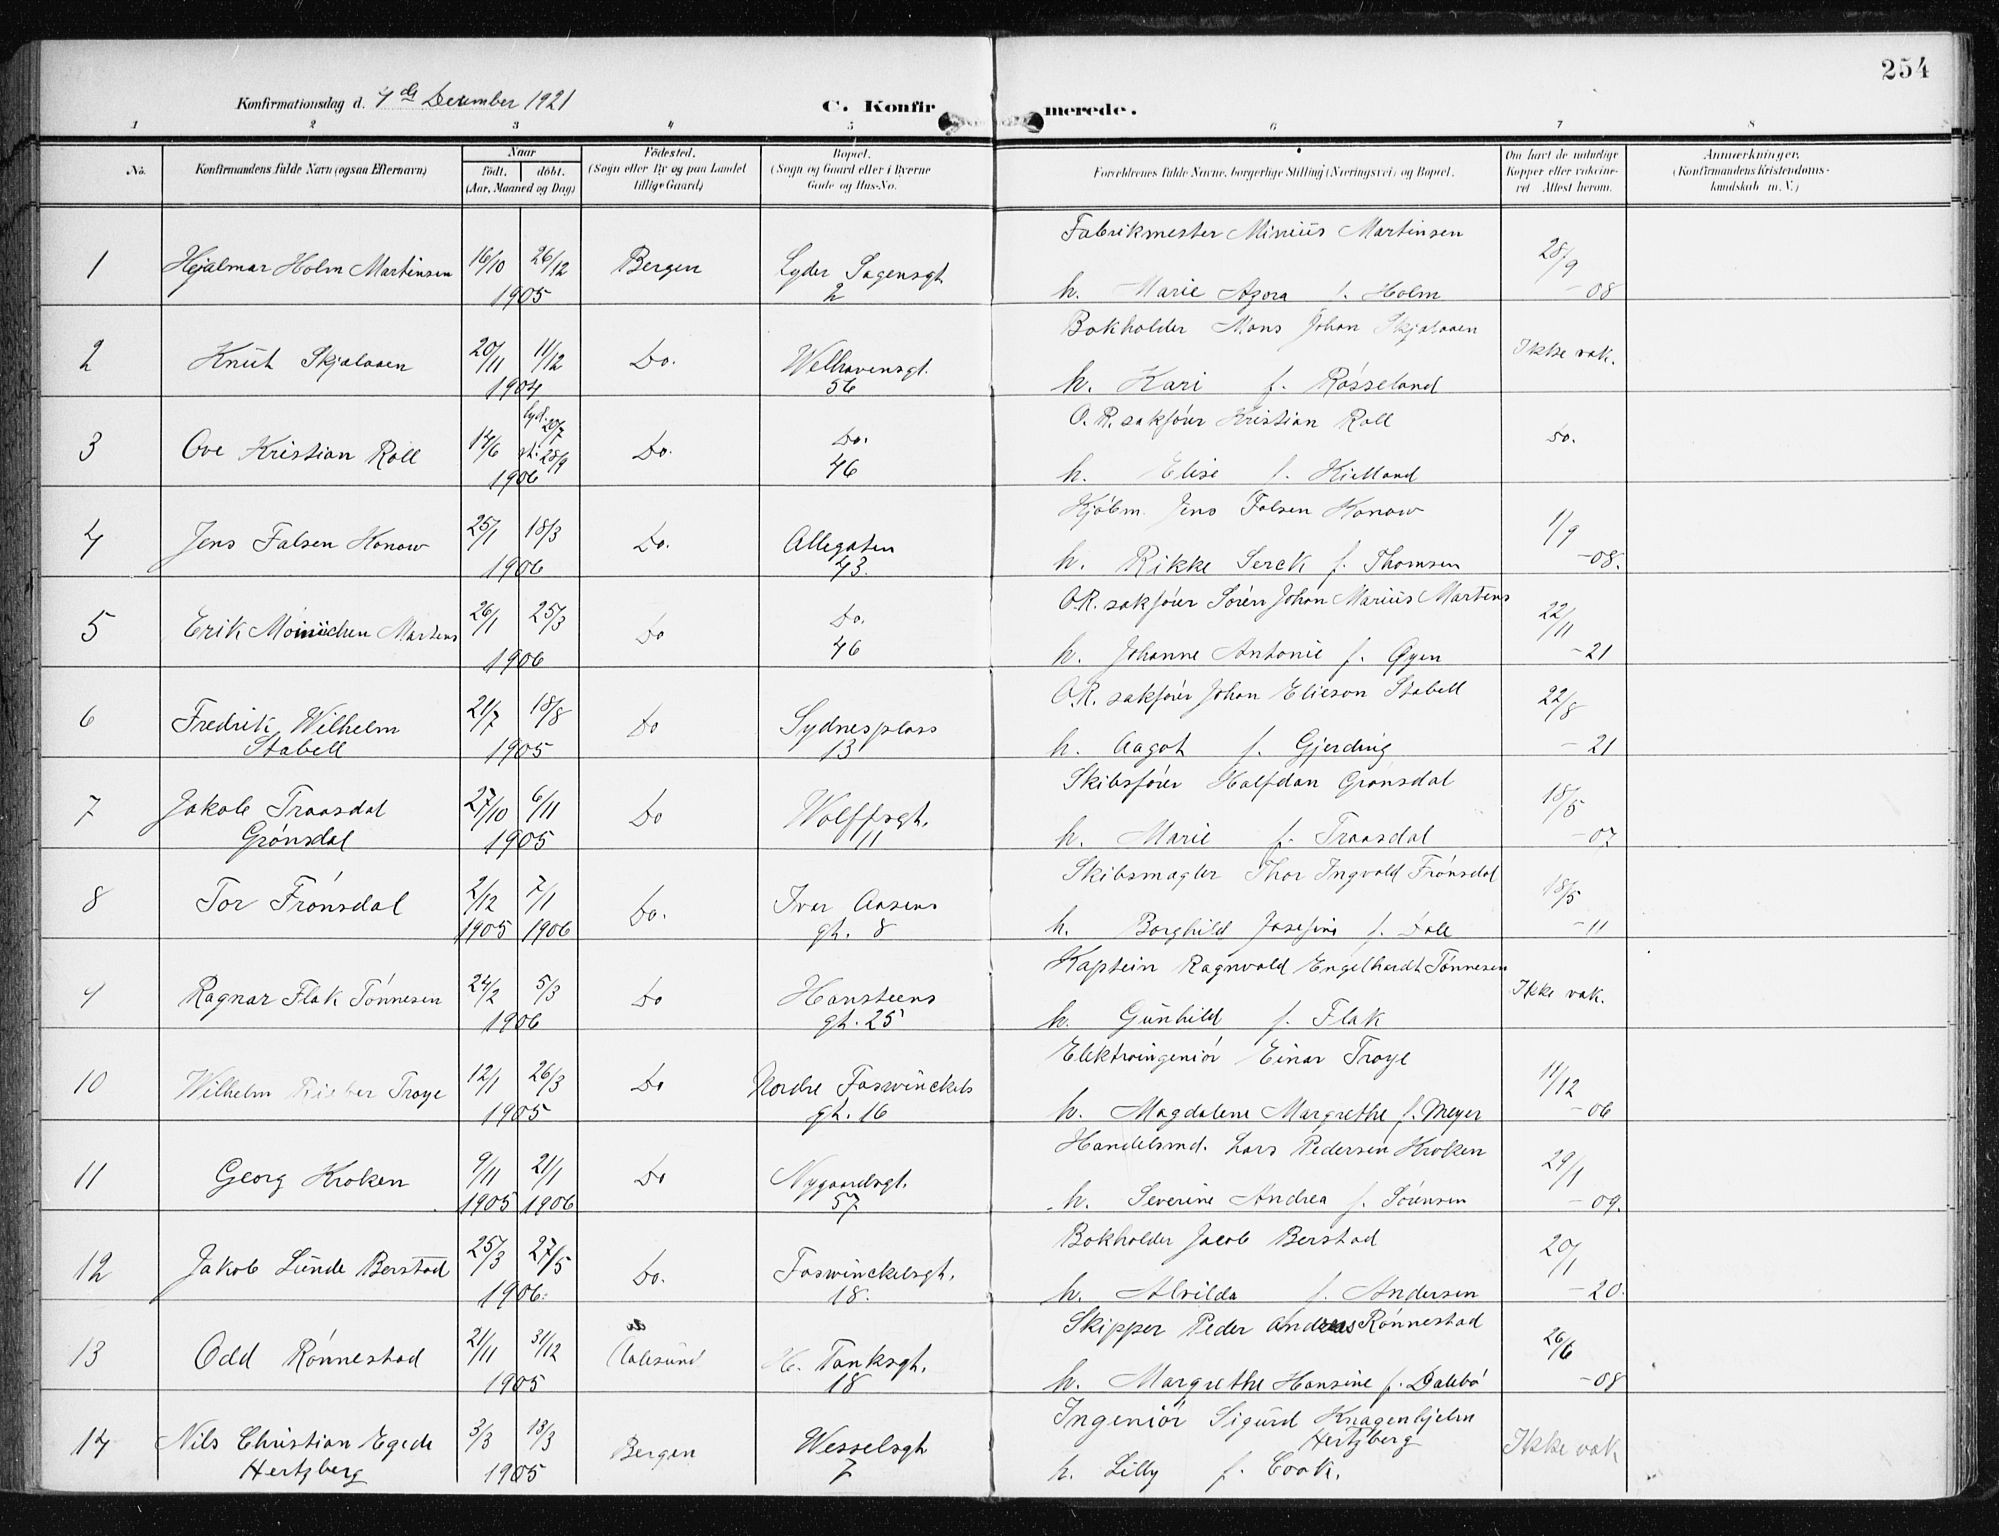 254
Konfirmationsdag d. 4de December 1921
C. Konfirmerede.
1 2 3 4 5 6 7 8
No. Konfirmandens fulde Navn (ogsaa Efternavn) Naar født. døbt. (Aar, Maaned og Dag) Fødested. (Sogn eller By og paa Landet tillige Gaard) Bopæl. (Sogn og Gaard eller i Byerne Gade og Hus-No. Forældrenes fulde Navne, borgerlige Stilling (Næringsvei) og Bopæl. Om havt de naturlige Kopper eller vaccineret Attest herom. Anmærkninger. (Konfirmandens Kristendomskundskab m. V.)
Fabrikmester Minius Martinsen
1 Hjalmar Holm Martinsen 16/10 26/12 Bergen Lyder Sagensgt. 28/9
1905 2 h. Marie Agora f. Holm -08
Bokholder Mons Johan Skjælaaen
2 Knut Skjælaaen 20/11 11/12 Do. Welhavensgt. Ikke vak.
1904 56 h. Kari f. Røsseland
O.R. sakfører Kristian Roll
3 Ove Kristian Roll 14/6 20/7 28/9 Do. Do. Do.
1906 46 h. Elise f. Kielland
Kjøbm. Jens Falsen Konow
4 Jens Falsen Konow 25/1 18/3 Do. Allegaten 1/9
1906 43. h. Rikke Serck f. Thomsen -08.
O.R. sakfører Sören Johan Marius Martens
5 Erik Martens 26/1 25/3 Do Do. 22/11
1906 46 h. Johanne Antonie f. Øyen -21
O.R. sakfører Johan Elieson Stabell
6 Fredrik Wilhelm 21/7 18/8 Do Sydnesplass 22/8
Stabell 1905 13 h. Aagot f. Gjerding -21
Skibsfører Halfdan Grønsdal
7 Jakob Traasdal 27/10 6/11 Do Wolffsgt. 18/5
Grønsdal 1905 11 h. Marie f. Traasdal -07
Skibsmægler Thor Ingvald Frønsdal
8 Tor Frønsdal 2/12 7/1 Do. Ivar Aasens 18/5
1905 1906 gt. 8 h. Borghild Josefine f. Dale -11
Kaptein Ragnvald Engelhardt Tønnesen
9 Ragnar Flak Tønnesen 24/2 5/3 Do Hansteens Ikke vak.
1906 gt. 25 h. Gunhild f. Flak
Elektroingeniør Einar Troye
10 Wilhelm Rieber Troye 12/1 26/3 Do Nordre Foswinckels 11/12
1905 gt. 16 h. Magdalene Margrethe f. Meyer -06
Handelsmd. Lars Pedersen Kroken
11 Georg Kroken 9/11 21/1 Do Nygaardsgt. 29/1
1905 1906 57 h. Severine Andrea f. Sørensen -09.
Bokholder Jacob Berstad
12 Jakob Lunde Berstad 25/3 27/5 Do. Foswinckelsgt. 20/1
1906. 18. h. Alvilda f. Andersen -20.
Skipper Peder Andreas Rønnestad
13 Odd Rønnestad 21/11 31/12 Aalesund H. Tanksgt. 26/6
1905 18 h. Margrethe Hansine f. Dalebø -08
Ingeniør Sigurd Knagenhjelm
14 Nils Christian Egede 3/3 13/3 Bergen Wesselsgt Hertzberg Ikke vak
Hertzberg 1905 7 h. Lilly f. Cook.